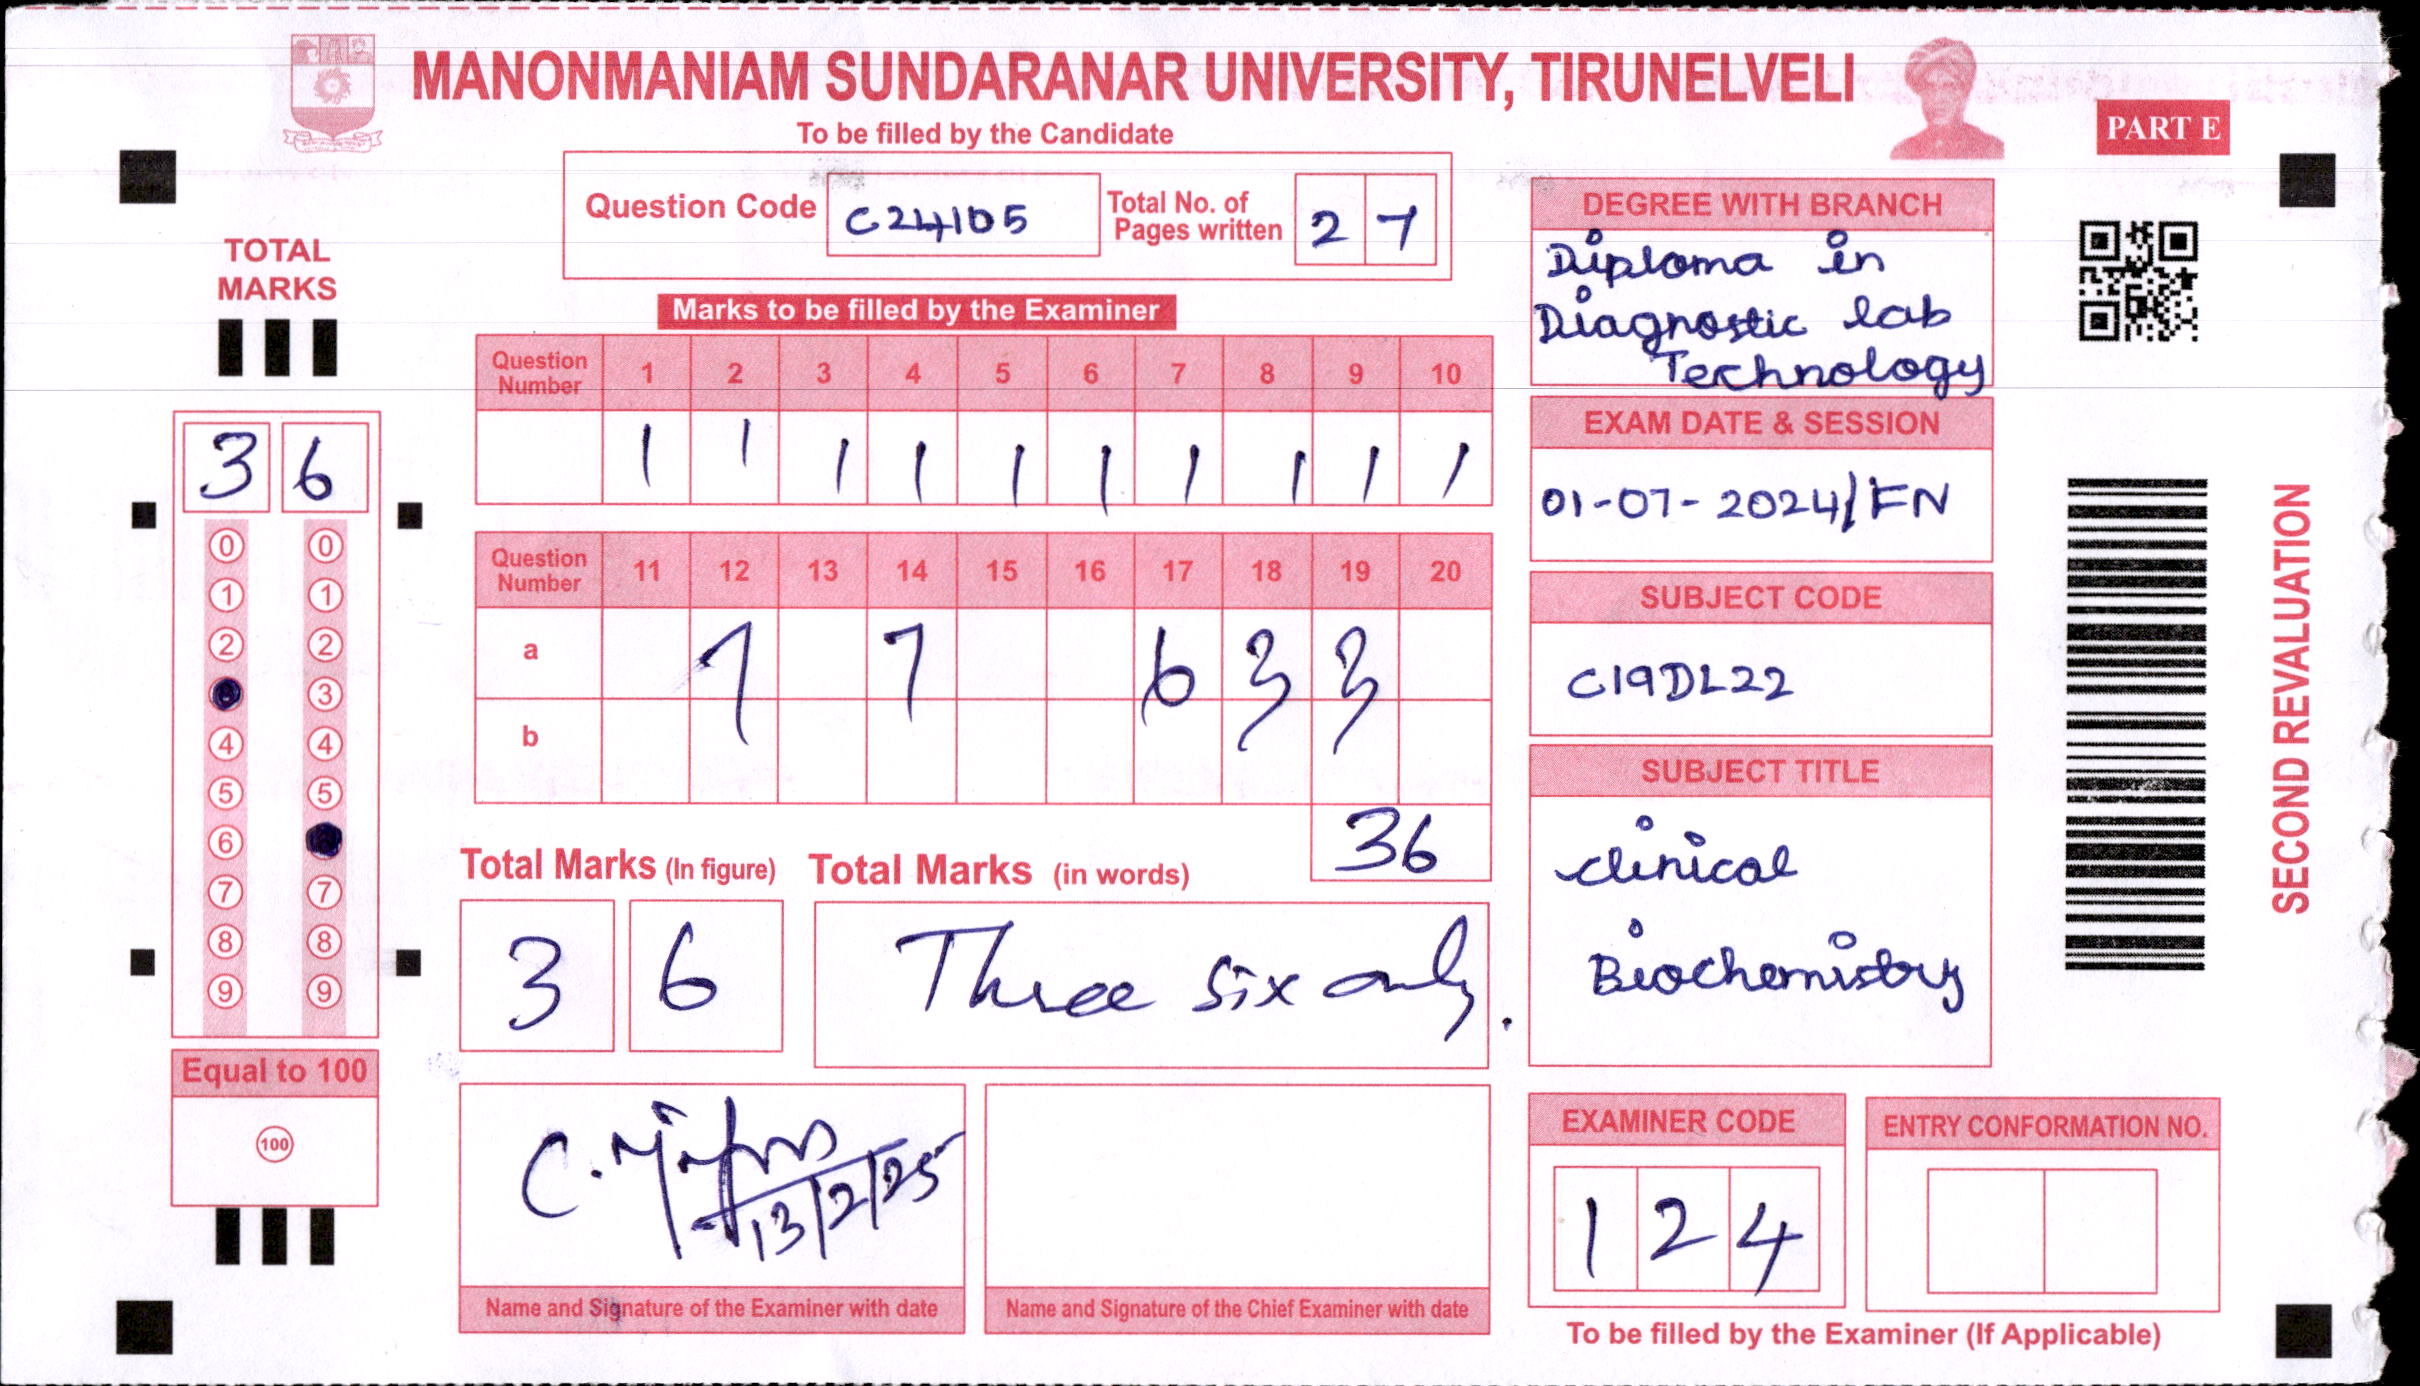 MANONMANIAM SUNDARANAR UNIVERSITY, TIRUNELVELI
To be filled by the Candidate
PART E
Question Code C24105 Total No. of Pages written 2 7
TOTAL
MARKS
3 6
0 0
1 1
2 2
3
4 4
5 5
6
7 7
8 8
9 9
Equal to 100
100
Marks to be filled by the Examiner
Question Number 1 2 3 4 5 6 7 8 9 10
1 1 1 1 1 1 1 1 1 1
Question Number 11 12 13 14 15 16 17 18 19 20
a 7 7 6 3 3
b
36
Total Marks (In figure) Total Marks (in words)
3 6 Three six only.
13/2/25
Name and Signature of the Examiner with date
Name and Signature of the Chief Examiner with date
DEGREE WITH BRANCH
Diploma in
Diagnostic lab
Technology
EXAM DATE & SESSION
01-07-2024/FN
SUBJECT CODE
C19DL22
SUBJECT TITLE
clinical
Biochemistry
EXAMINER CODE
1 2 4
ENTRY CONFORMATION NO.
To be filled by the Examiner (If Applicable)
SECOND REVALUATION